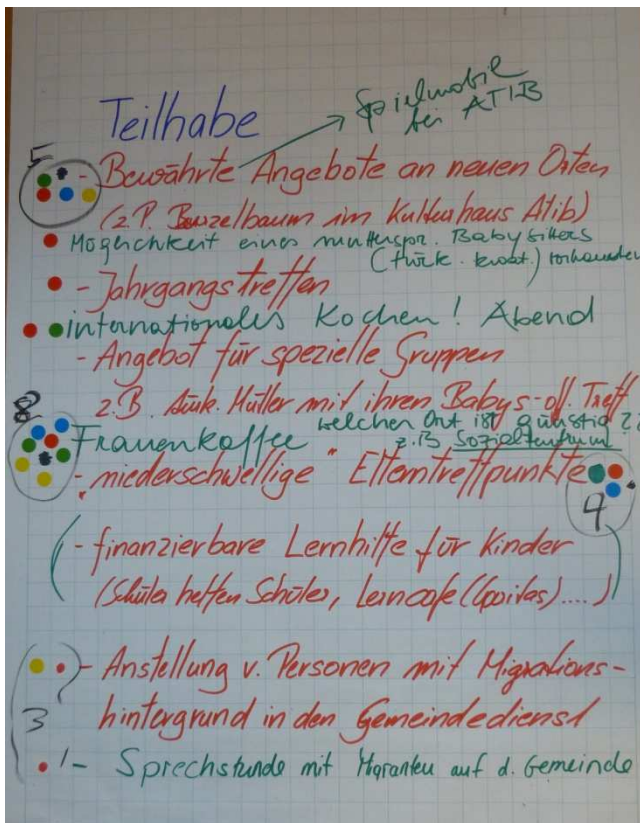 Teilhabe
Spielmobil
bei ATIB
5
- Bewährte Angebote an neuen Orten
(z.B. Burzelbaum im Kulturhaus Atib)
Möglichkeit eines mutterspr. Babysitters
(türk. kroat.) vorhanden
- Jahrgangstreffen
internationales Kochen! Abend
- Angebot für spezielle Gruppen
z.B. türk. Mütter mit ihren Babys - off. Treff
8
Frauenkaffee welchen Ort ist günstig ??
z.B Sozialzentrum
- "niederschwellige" Elterntreffpunkte
4
- finanzierbare Lernhilfe für Kinder
(Schüler helfen Schüler, Lerncafe (Caritas)....)
- Anstellung v. Personen mit Migrations-
3
hintergrund in den Gemeindedienst
1- Sprechstunde mit Migranten auf d. Gemeinde